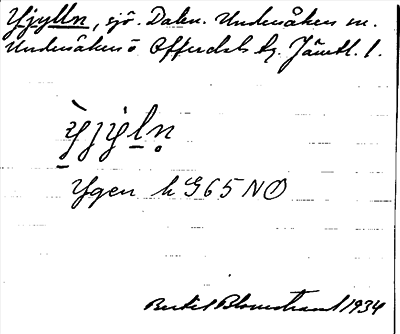 Yjylln, sjö. Dalen. Undersåkers sn.
Undersåkers o Offerdals tg. Jämtl. l.
Yjyln
Ygen h G65NO
Bertil Blomstrand 1934